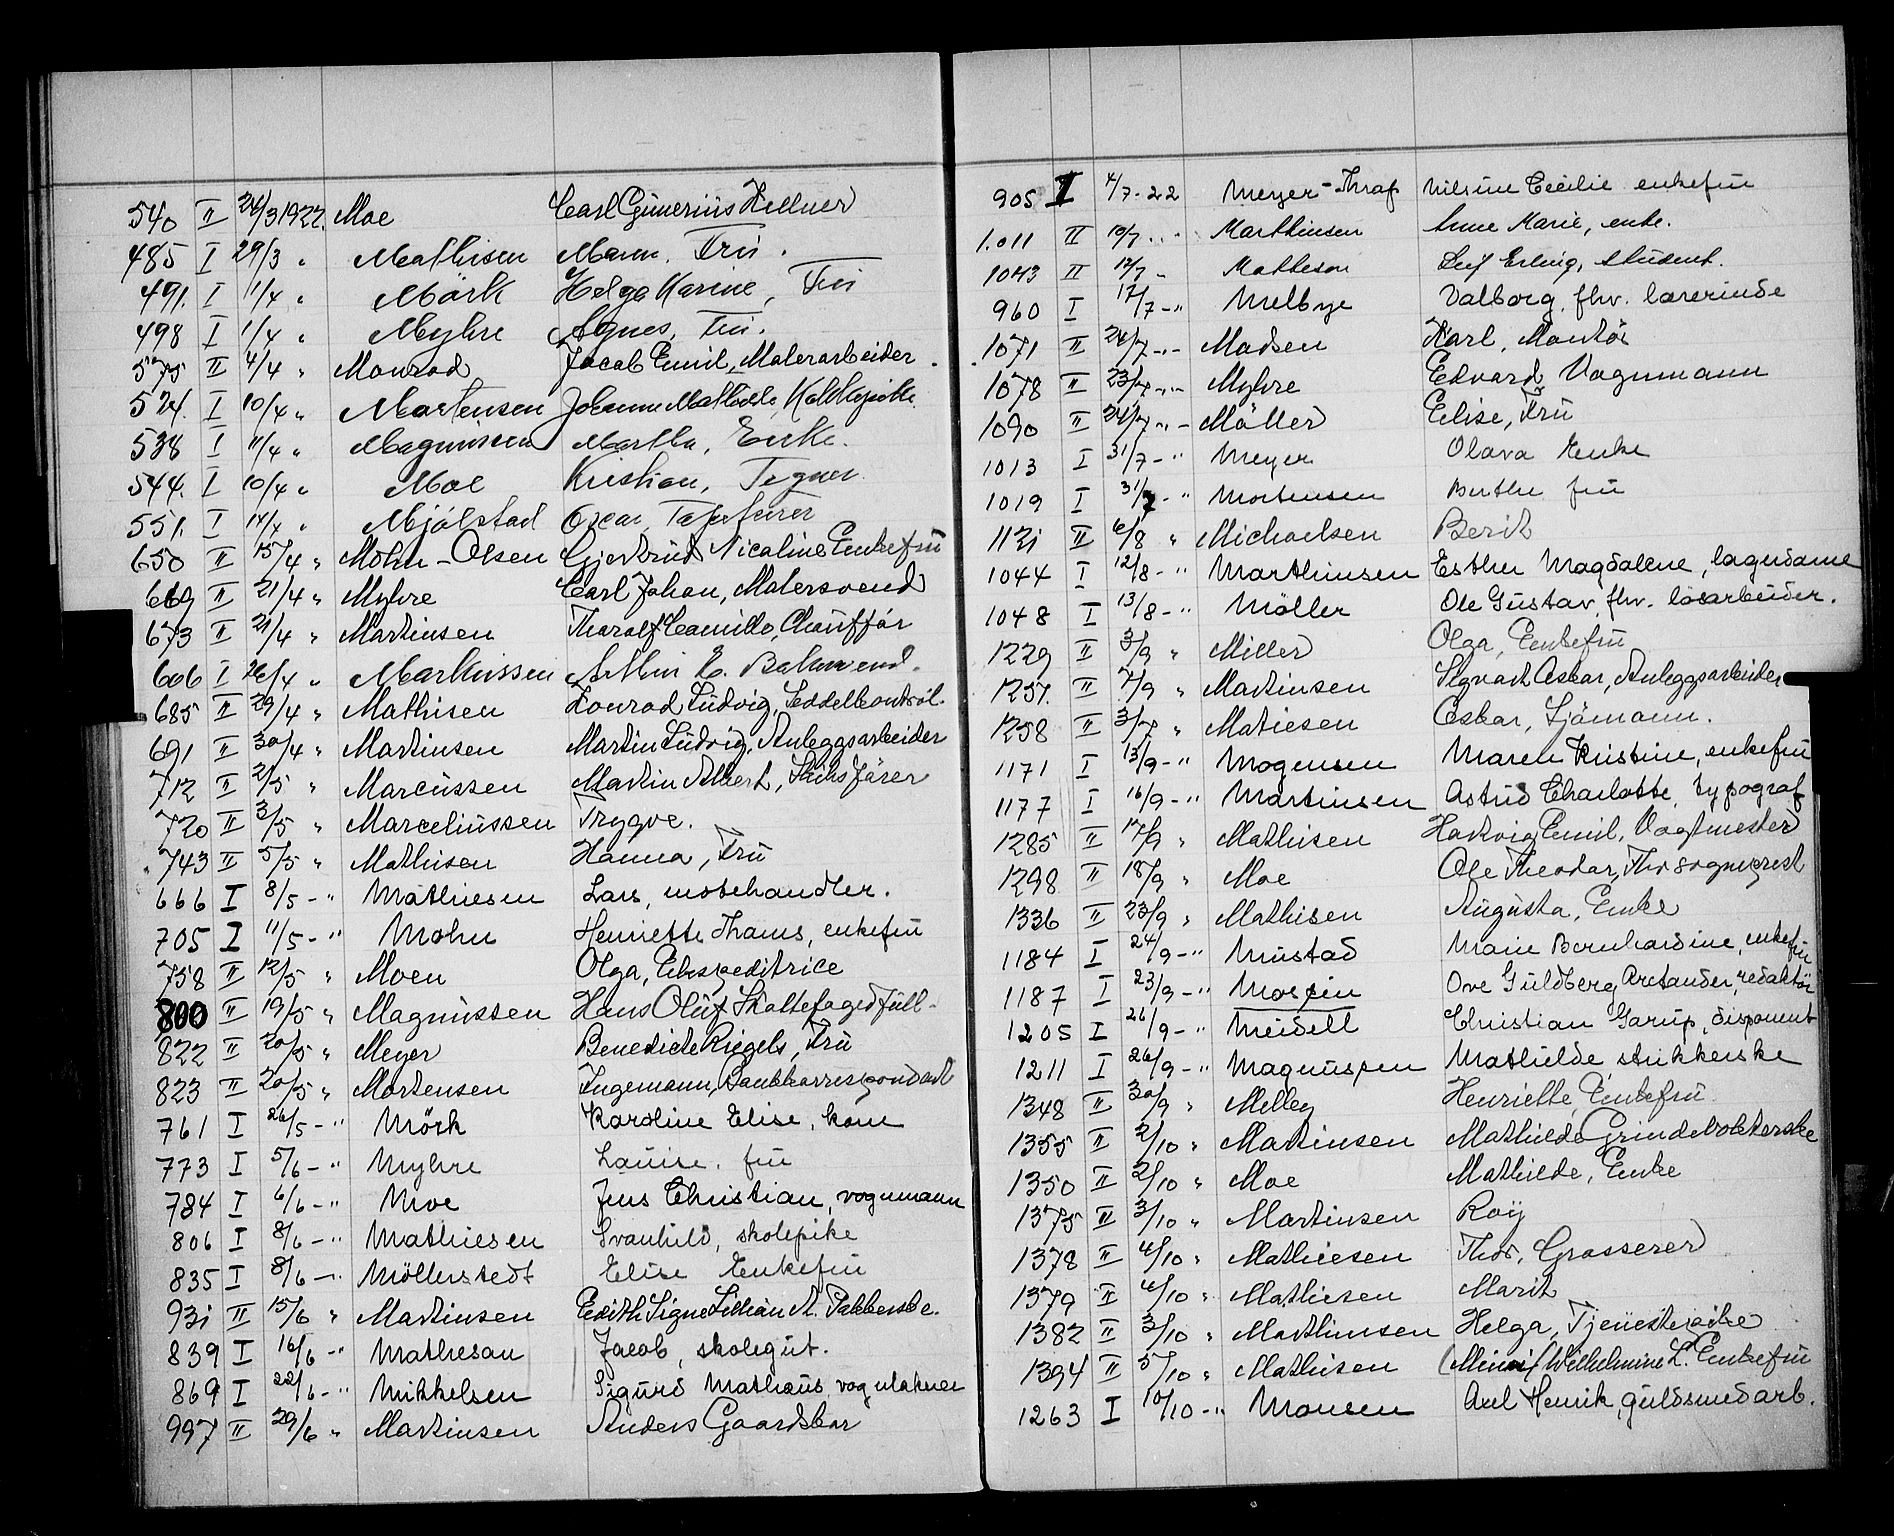 540 II 24/3 1922. Moe Carl Gunerius Kellner
485 I 29/3 " Mathisen Maren, Fru.
491. I 1/4 " Mörk Helga Karine, Fru
498 I 1/4 " Myhre Agnes, Fru.
575 II 4/4 " Monrad Jacob Emil, Malerarbeider.
524. I 10/4 " Mortensen Johanne Mathilde
538 I 11/4 " Magnussen Martha, Enke.
544. I 10/4 " Moe Kristian, Tegner.
551. I 14/4 " Mjölstad Oscar, Tapetserer
650 II 15/4 " Mohn-Olsen Gjertrud Nicoline Enkefru
669 II 21/4 " Myhre Carl Johan, Malersvend
673 II 21/4 " Martinsen Tharalf Camillo, Chaufför
606 I 26/4 " Markussen
685 II 29/4 " Mathisen Konrad Ludvig, Seddelkontröl.
691 II 30/4 " Martinsen Martin Ludvig, Anleggsarbeider
712 II 2/5 " Marcussen Martin Albert, Skibsförer
720 II 3/5 " Marceliussen Trygve.
743 II 5/5 " Mathisen Hanna, Fru
666 I 8/5 - " Mathiesen Lars, motehandler.
705 I 11/5 - " Mohn Henriette Thams, enkefru
758 II 12/5 " Moen Olga, Ekspeditrice
800 II 19/5 " Magnussen Hans Oluf Skattefogedfull.
822 II 20/5 " Meyer Benedicte Riegels, Fru
823 II 20/5 " Mortensen Ingemann, Bankkorrespondent
761 I 26/5 - " Mörk Karoline Elise, kone
773 I 5/6 - " Myhre Louise. fru
784 I 6/6 - " Moe Jens Christian, vognmann
806 I 8/6 - " Mathiesen Svanhild, skolepike
835 I 8/6 - " Möllerstedt Elise Enkefru
931 II 15/6 " Martinsen Edith Signe Lillian A. Pakkerske.
839 I 16/6 - " Mathesau Jacob, skolegut.
869 I 22/6 - " Mikkelsen Sigurd Mathæus, vognlakerer
997 II 29/6 " Martinsen Anders Gaardskar
905 I 4/7-22 Meyer-Thraf Nilsine Cecilie enkefru
1.011 II 10/7 " Marthinsen Anne Marie, enke.
1043 II 12/7 " Matheson Leif Erling, student.
960 I 17/7 - " Melbye Valborg, fhv. lærerinde
1071 II 24/7 - " - Madsen Karl, Montör
1078 II 23/7 - " - Myhre Edvard Vognmann
1090 II 24/7 - " - Möller Elise, Fru
1013 I 31/7 - " Meyer Olava Enke
1019 I 31/7 - " Mortensen Berthe fru
1121 II 6/8 " Michaelsen Berit
1044 I 12/8 - " Marthinsen Esther Magdalene, lagerdame
1048 I 13/8 - " Möller Ole Gustav fhv. lösarbeider.
1229 II 3/9 " Miller Olga, Enkefru
1251. II 7/9 " Martinsen Sigvart Oskar, Anleggsarbeider
1258 II 3/7 " Matiesen Oskar, Sjömann.
1171 I 13/9 - " Mogensen Maren Kristine, enkefru
1177 I 16/9 - " Martinsen Astrid Charlotte, typograf
1285 II 17/9 " Mathisen Hartvig Emil, Vagtmester
1298 II 18/9 " Moe Ole Theodor, Fhv sogneprest
1336 II 23/9 " Mathisen Augusta, Enke
1184 I 24/9 - " Mustad Marie Bernhardine, enkefru
1187 I 23/9 - " Mossin Ove Guldberg Arctander, redaktör
1205 I 26/9 - " Meidell Christian Garup, disponent
1211 I 26/9 - " Magnussen Mathilde strikkerske
1348 II 30/9 " Melley Henriette, Enkefru.
1355 II 2/10 " Martinsen Mathilde Grindevokterske
1350 II 2/10 " Moe Mathilde, Enke
1375 II 3/10 " Martinsen Roy
1378 II 4/10 " Mathiesen Thor, Grosserer
1379 II 4/10 " Mathiesen Marit
1382 II 3/10 " Marthinsen Helga, Tjenestepike
1394 II 5/10 " Mathisen (Minni) Wilhelmine L. Enkefru
1263 I 10/10 - " Monsen Axel Henrik, guldsmedarb.